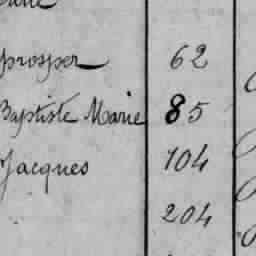 prosper 62
Baptiste Marie 85
Jacques 104
204